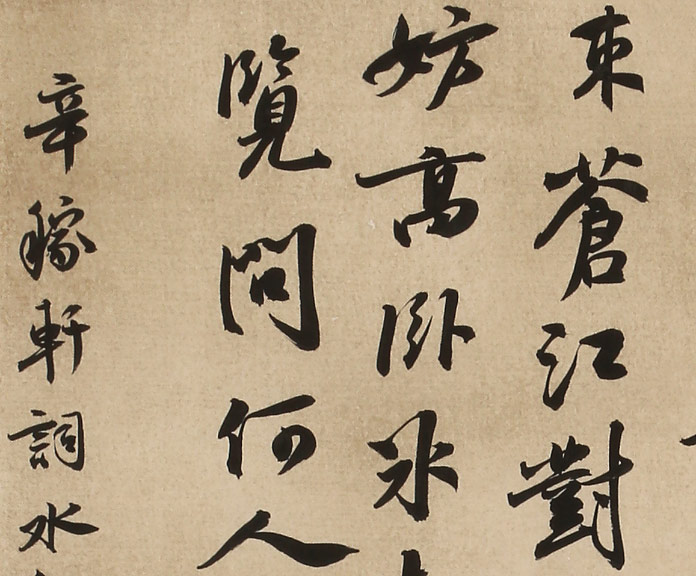 束蒼江對
妨高卧冰
覽問何人
辛稼軒詞水